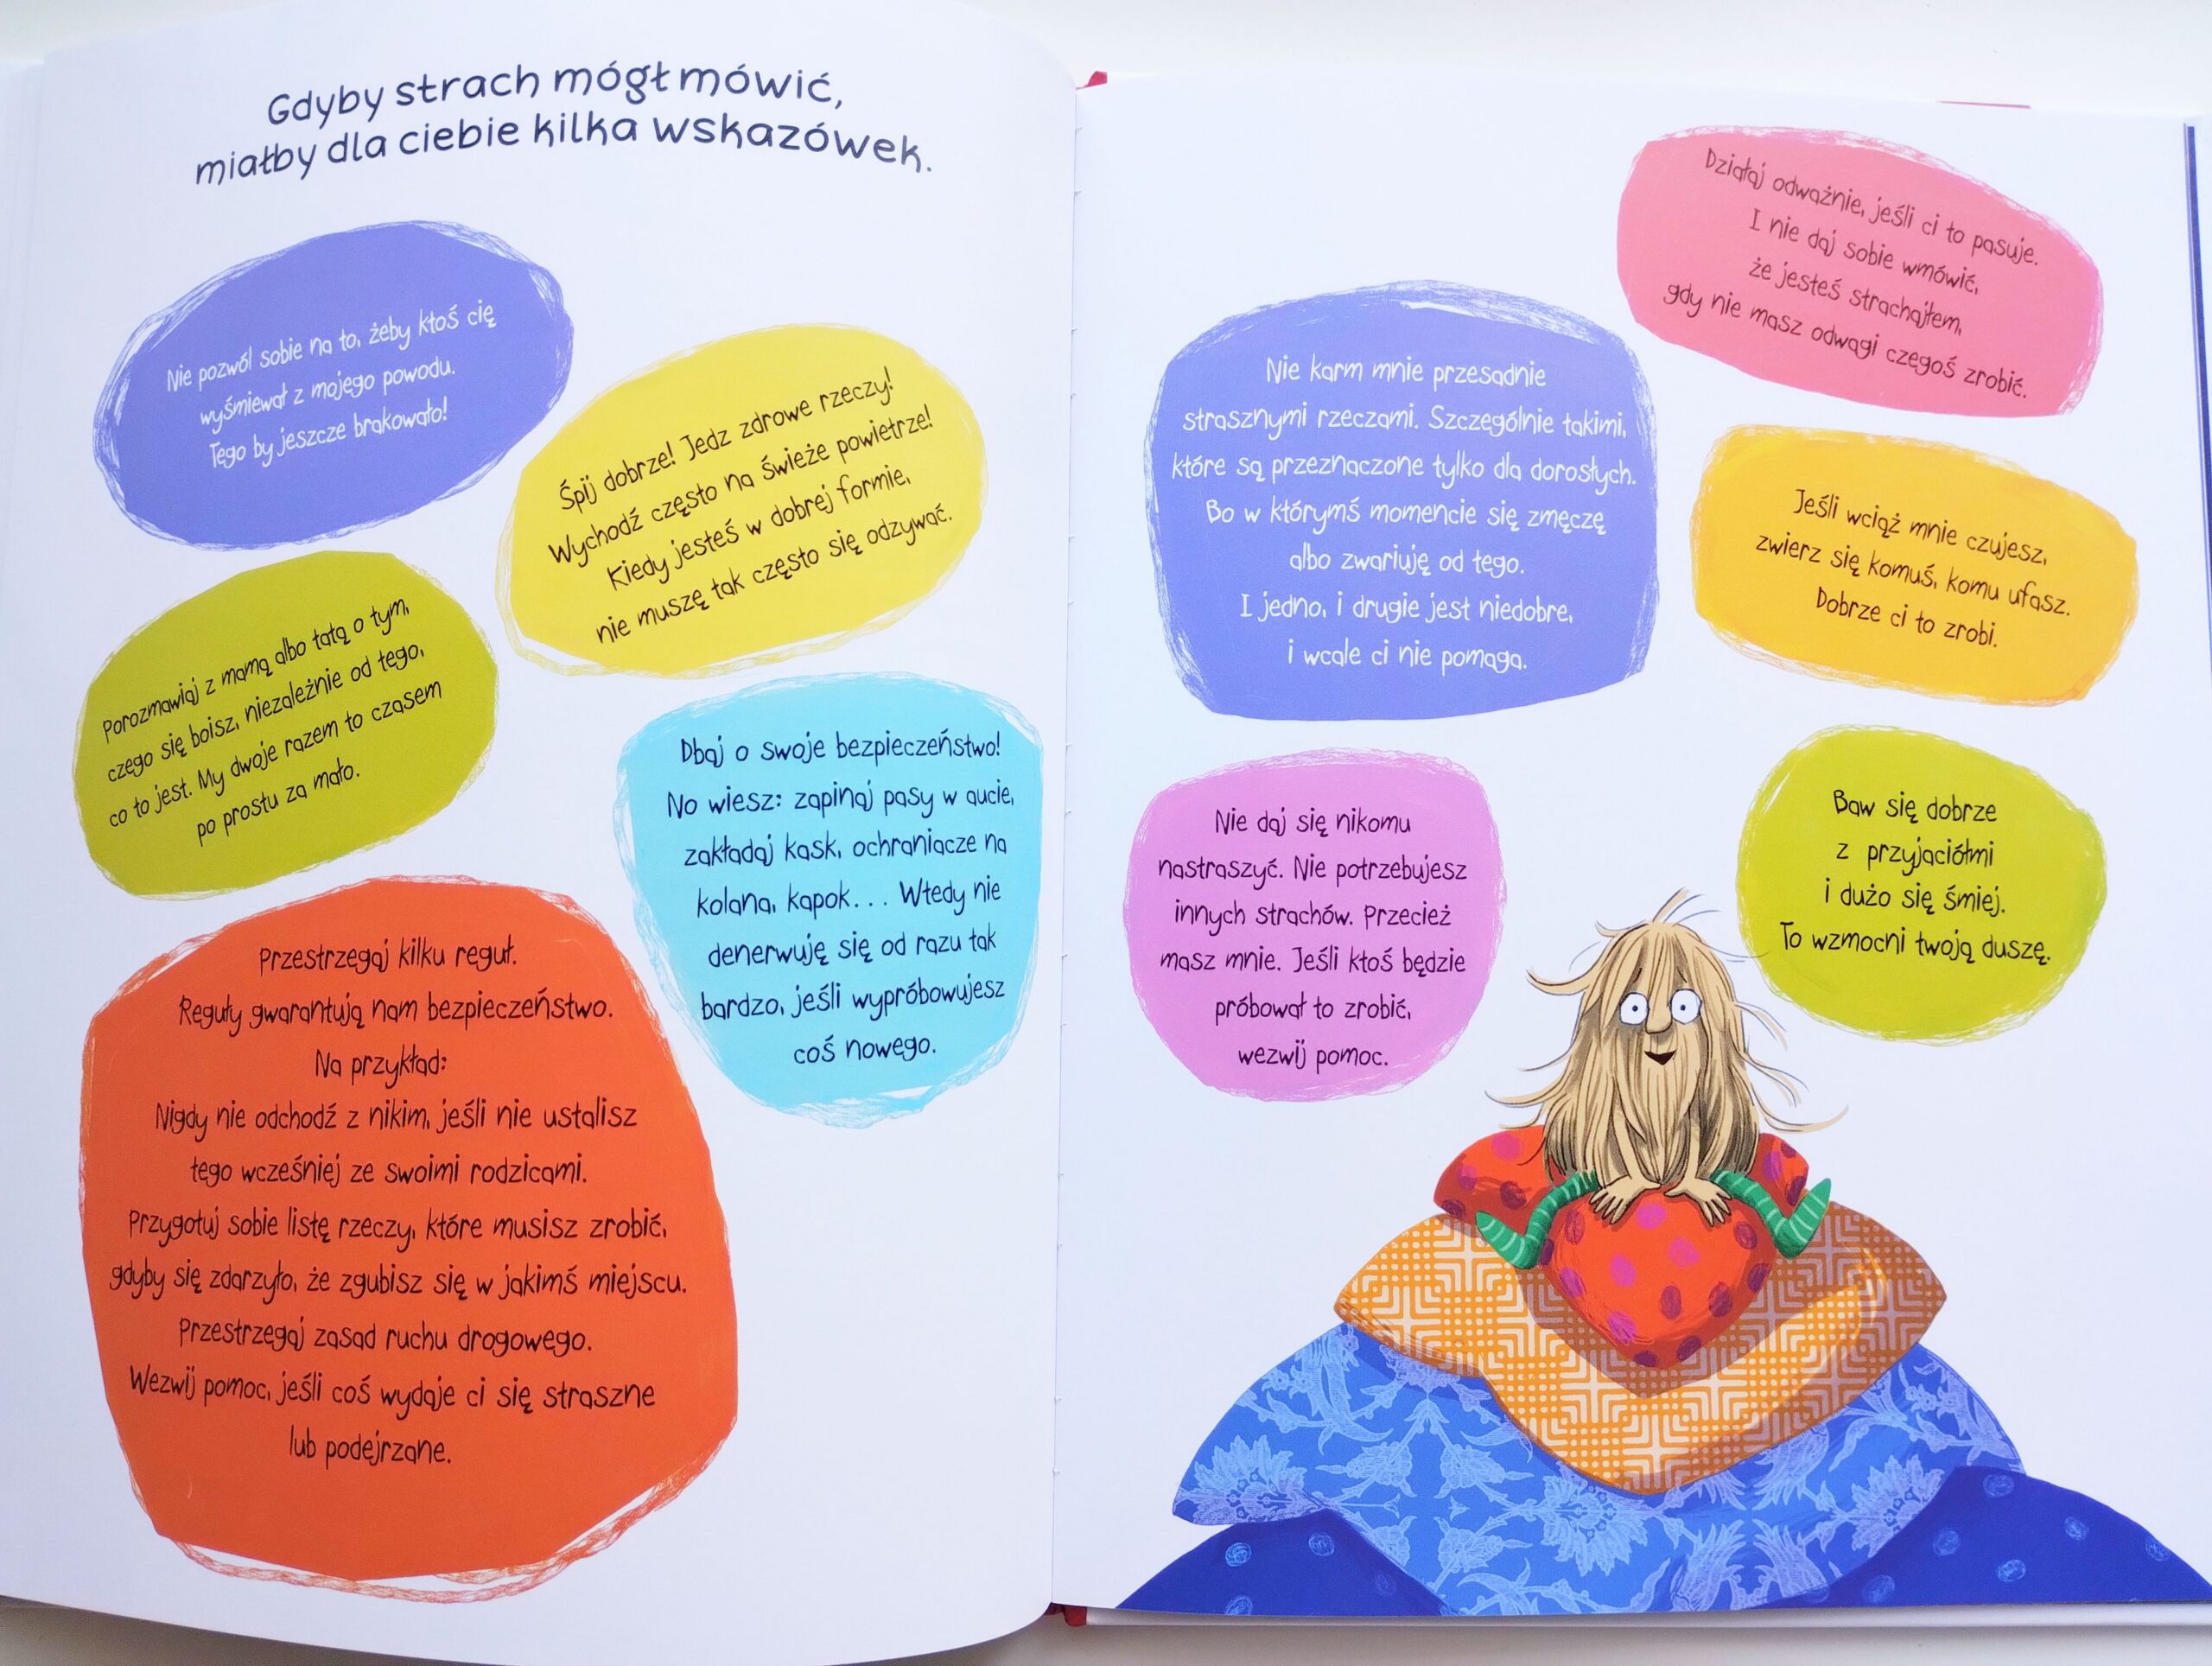 Gdyby strach mógł mówić,
miałby dla ciebie kilka wskazówek.
Nie pozwól sobie na to, żeby ktoś cię
wyśmiewał z mojego powodu.
Tego by jeszcze brakowało!
Śpij dobrze! Jedz zdrowe rzeczy!
Wychodź często na świeże powietrze!
Kiedy jesteś w dobrej formie,
nie muszę tak często się odzywać.
Porozmawiaj z mamą albo tatą o tym,
czego się boisz, niezależnie od tego,
co to jest. My dwoje razem to czasem
po prostu za mało.
Dbaj o swoje bezpieczeństwo!
No wiesz: zapinaj pasy w aucie,
zakładaj kask, ochraniacze na
kolana, kapok... Wtedy nie
denerwuję się od razu tak
bardzo, jeśli wypróbowujesz
coś nowego.
Przestrzegaj kilku reguł.
Reguły gwarantują nam bezpieczeństwo.
Na przykład:
Nigdy nie odchodź z nikim, jeśli nie ustalisz
tego wcześniej ze swoimi rodzicami.
Przygotuj sobie listę rzeczy, które musisz zrobić,
gdyby się zdarzyło, że zgubisz się w jakimś miejscu.
Przestrzegaj zasad ruchu drogowego.
Wezwij pomoc, jeśli coś wydaje ci się straszne
lub podejrzane.
Działaj odważnie, jeśli ci to pasuje.
I nie daj sobie wmówić,
że jesteś strachajłem,
gdy nie masz odwagi czegoś zrobić.
Nie karm mnie przesadnie
strasznymi rzeczami. Szczególnie takimi,
które są przeznaczone tylko dla dorosłych.
Bo w którymś momencie się zmęczę
albo zwariuję od tego.
I jedno, i drugie jest niedobre,
i wcale ci nie pomaga.
Jeśli wciąż mnie czujesz,
zwierz się komuś, komu ufasz.
Dobrze ci to zrobi.
Nie daj się nikomu
nastraszyć. Nie potrzebujesz
innych strachów. Przecież
masz mnie. Jeśli ktoś będzie
próbował to zrobić,
wezwij pomoc.
Baw się dobrze
z przyjaciółmi
i dużo się śmiej.
To wzmocni twoją duszę.